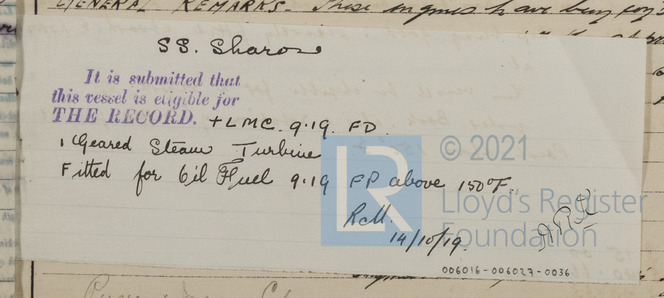 GENERAL REMARKS. These engines have been
SS. Sharon
It is submitted that
this vessel is eligible for
THE RECORD. + LMC. 9.19. FD.
1 Geared Steam Turbine
Fitted for Oil Fuel 9.19 FP above 150°F.
14/10/19.
© 2021
Lloyd's Register
Foundation
LR
006016-006027-0036